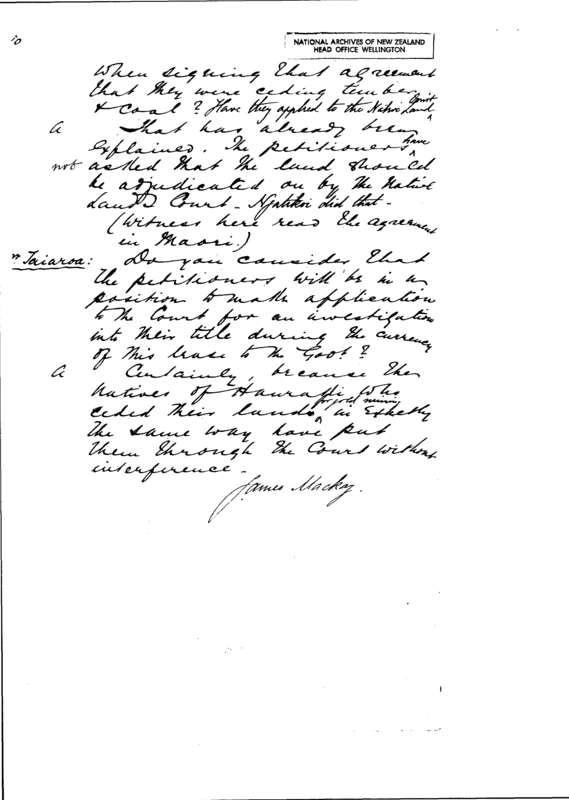 NATIONAL ARCHIVES OF NEW ZEALAND
HEAD OFFICE WELLINGTON
when signing that agreement
that they were ceding timber
& coal? Have they applied to the Native Land Court
A That has already been
explained. The petitioners have
not asked that the land should
be adjudicated on by the Native
Land Court - did that -
(Witness here read the agreement
in Maori.)
Taiaroa: Do you consider that
the petitioners will be in a
position to make application
to the Court for an investigation
into their title during the currency
of this lease to the Govt?
A Certainly, because the
natives of Hauraki who
ceded their lands for gold mining in exactly
the same way have put
them through the Court without
interference -
James Mackay.